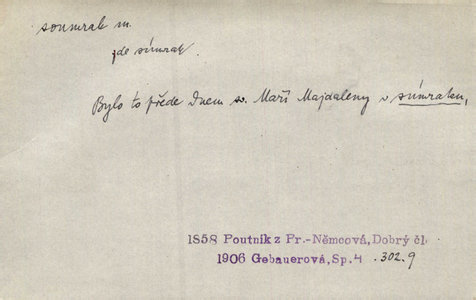 soumrak m.
zde súmrak.
Bylo to přede Dnem sv. Maří Majdaleny v súmraku,
1858 Poutník z Pr.-Němcová, Dobrý čl.
1906 Gebauerová, Sp. 4 .302.9